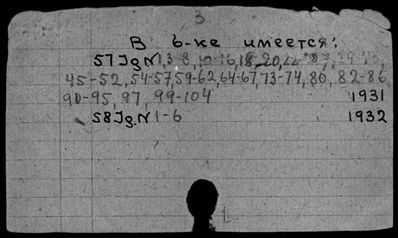 3
В б-ке имеется:
57 Jg. N 1, 3-8, 10-16, 18, 20, 22
45-52, 54-57, 59-62, 64-67, 73-74, 80, 82-86
90-95, 97, 99-104 1931
58 Jg. N 1-6 1932